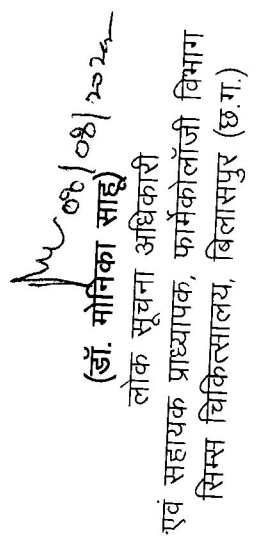 08/08/2022
(डॉ. मोनिका साहू)
लोक सूचना अधिकारी
एवं सहायक प्राध्यापक, फार्मकोलॉजी विभाग
सिम्स चिकित्सालय, बिलासपुर (छ.ग.)